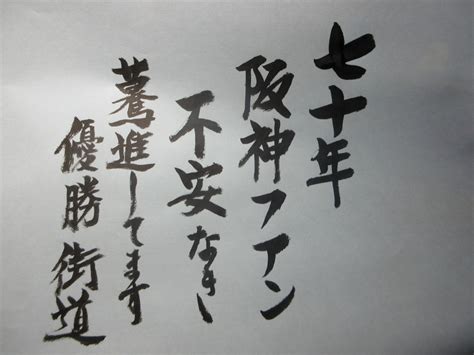 七十年
阪神フアン
不安なし
驀進してます
優勝街道